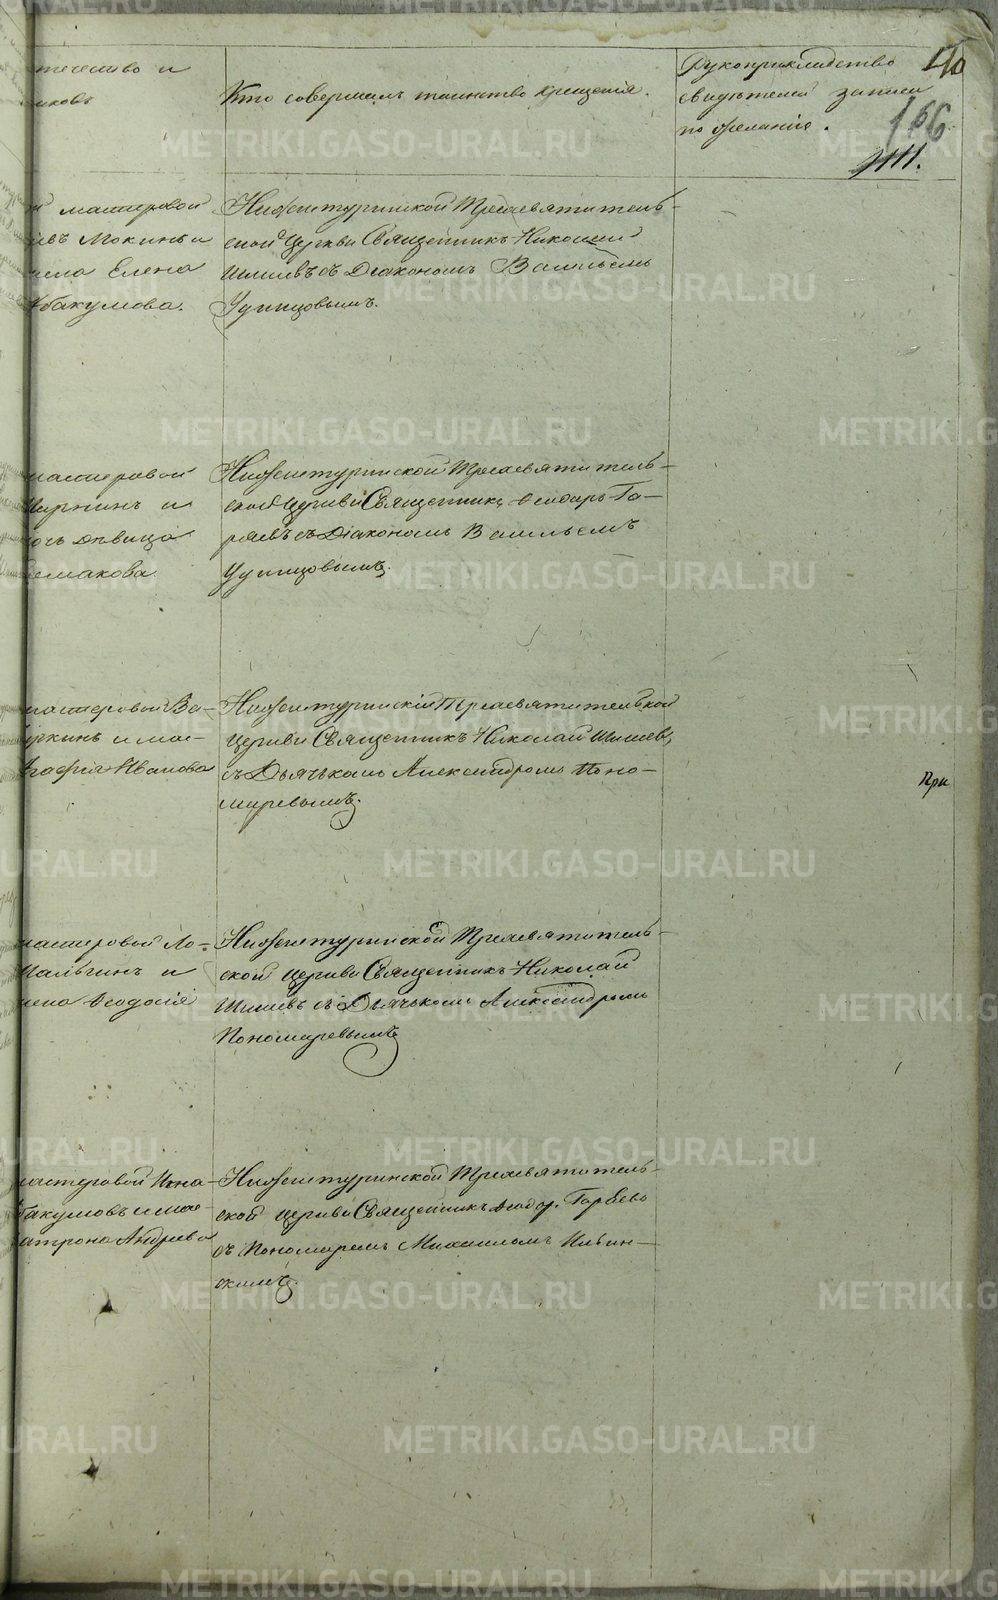 течество и
иковъ
Кто совершалъ таинство крещенія.
Рукоприкладство
свидѣтелей записи
по желанію.
140
166
111.
й мастеровой
Мокинъ и
Елена
бакумова.
Нижнетуринской Трехсвятитель-
ской Церкви Священникъ Николай
Шишевъ съ Діакономъ Васильемъ
Удинцовымъ.
мастеровой
и
очь дѣвица
емакова.
Нижнетуринской Трехсвятитель-
ской Церкви Священникъ Ѳеодоръ Га-
ряевъ съ Діакономъ Васильемъ
Удинцовымъ.
мастеровой Ва-
кинъ и
Иванова
Нижнетуринскій Трехсвятительской
Церкви Священникъ Николай Шишевъ
съ Дьячкомъ Александромъ Поно-
маревымъ.
При
мастеровой Ло-
Пальгинъ и
жена Ѳеодосія
Нижнетуринской Трехсвятитель-
ской Церкви Священникъ Николай
Шишевъ съ Дьячкомъ Александромъ
Пономаревымъ
мастеровой Игна-
бакумовъ и
атрона Андреева
Нижнетуринской Трехсвятитель-
ской церкви Священникъ Ѳеодор. Гаряевъ
съ Пономаремъ Михаиломъ Ильин-
скимъ.
METRIKI.GASO-URAL.RU